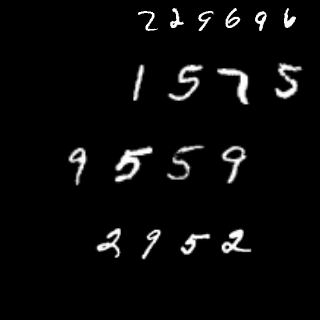 729696
1575
9559
2952